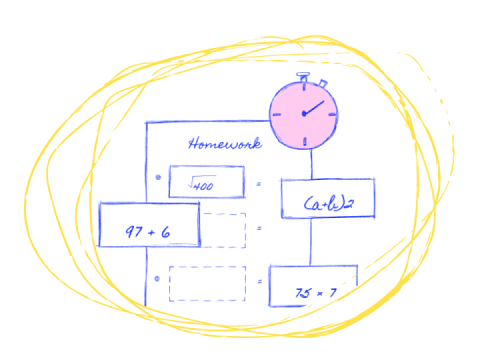 Homework
√400
=
(a+b)2
97 + 6
=
=
75 × 7